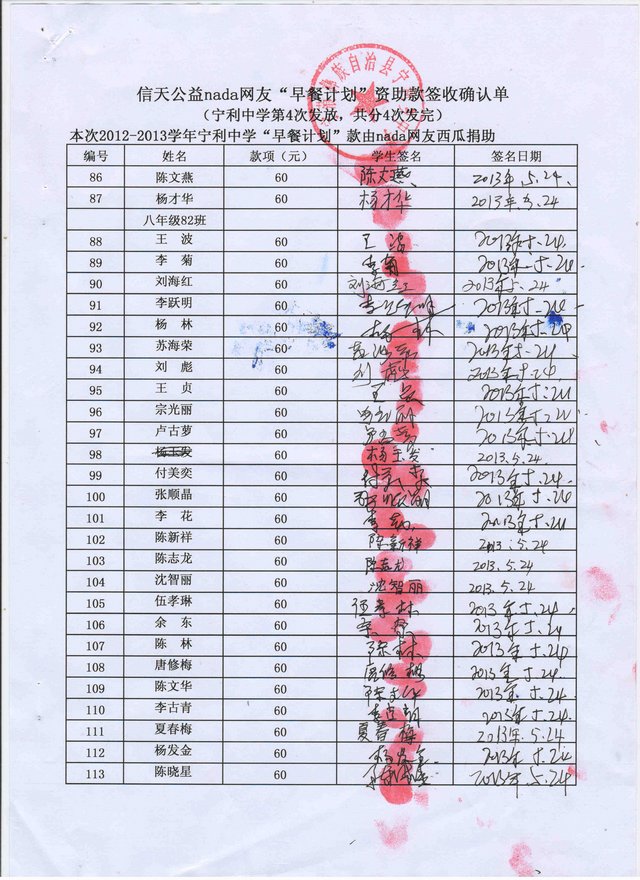 信天公益nada网友“早餐计划”资助款签收确认单
（宁利中学第4次发放，共分4次发完）
本次2012-2013学年宁利中学“早餐计划”款由nada网友西瓜捐助
编号 姓名 款项（元） 学生签名 签名日期
86 陈文燕 60 陈文燕 2013年.5.24.
87 杨才华 60 杨才华 2013年.5.24
八年级82班 60
88 王 波 60 王 波 2013年5.24
89 李 菊 60 李菊 2013年.5.24
90 刘海红 60 刘海红 2013年5.24
91 李跃明 60 李跃明 2013年5.24
92 杨 林 60 杨 林 2013年5.24
93 苏海荣 60 苏海荣 2013年5.24
94 刘 彪 60 刘 彪 2013年5.24
95 王 贞 60 王 贞 2013年5.24
96 宗光丽 60 2013年5.24
97 卢古萝 60 2013年5.24
98 杨玉发 60 杨玉发 2013.5.24
99 付美奕 60 2013年5.24
100 张顺晶 60 2013年5.24
101 李 花 60 2013年5.24
102 陈新祥 60 陈新祥 2013.5.24
103 陈志龙 60 陈志龙 2013.5.24
104 沈智丽 60 沈智丽 2013.5.24
105 伍孝琳 60 2013年5.24
106 余 东 60 2013年5.24
107 陈 林 60 陈 林 2013年5.24
108 唐修梅 60 唐修梅 2013年5.24
109 陈文华 60 陈文华 2013年5.24
110 李古青 60 2013年5.24.
111 夏春梅 60 夏春梅 2013年.5.24
112 杨发金 60 2013年5.24
113 陈晓星 60 2013年.5.24